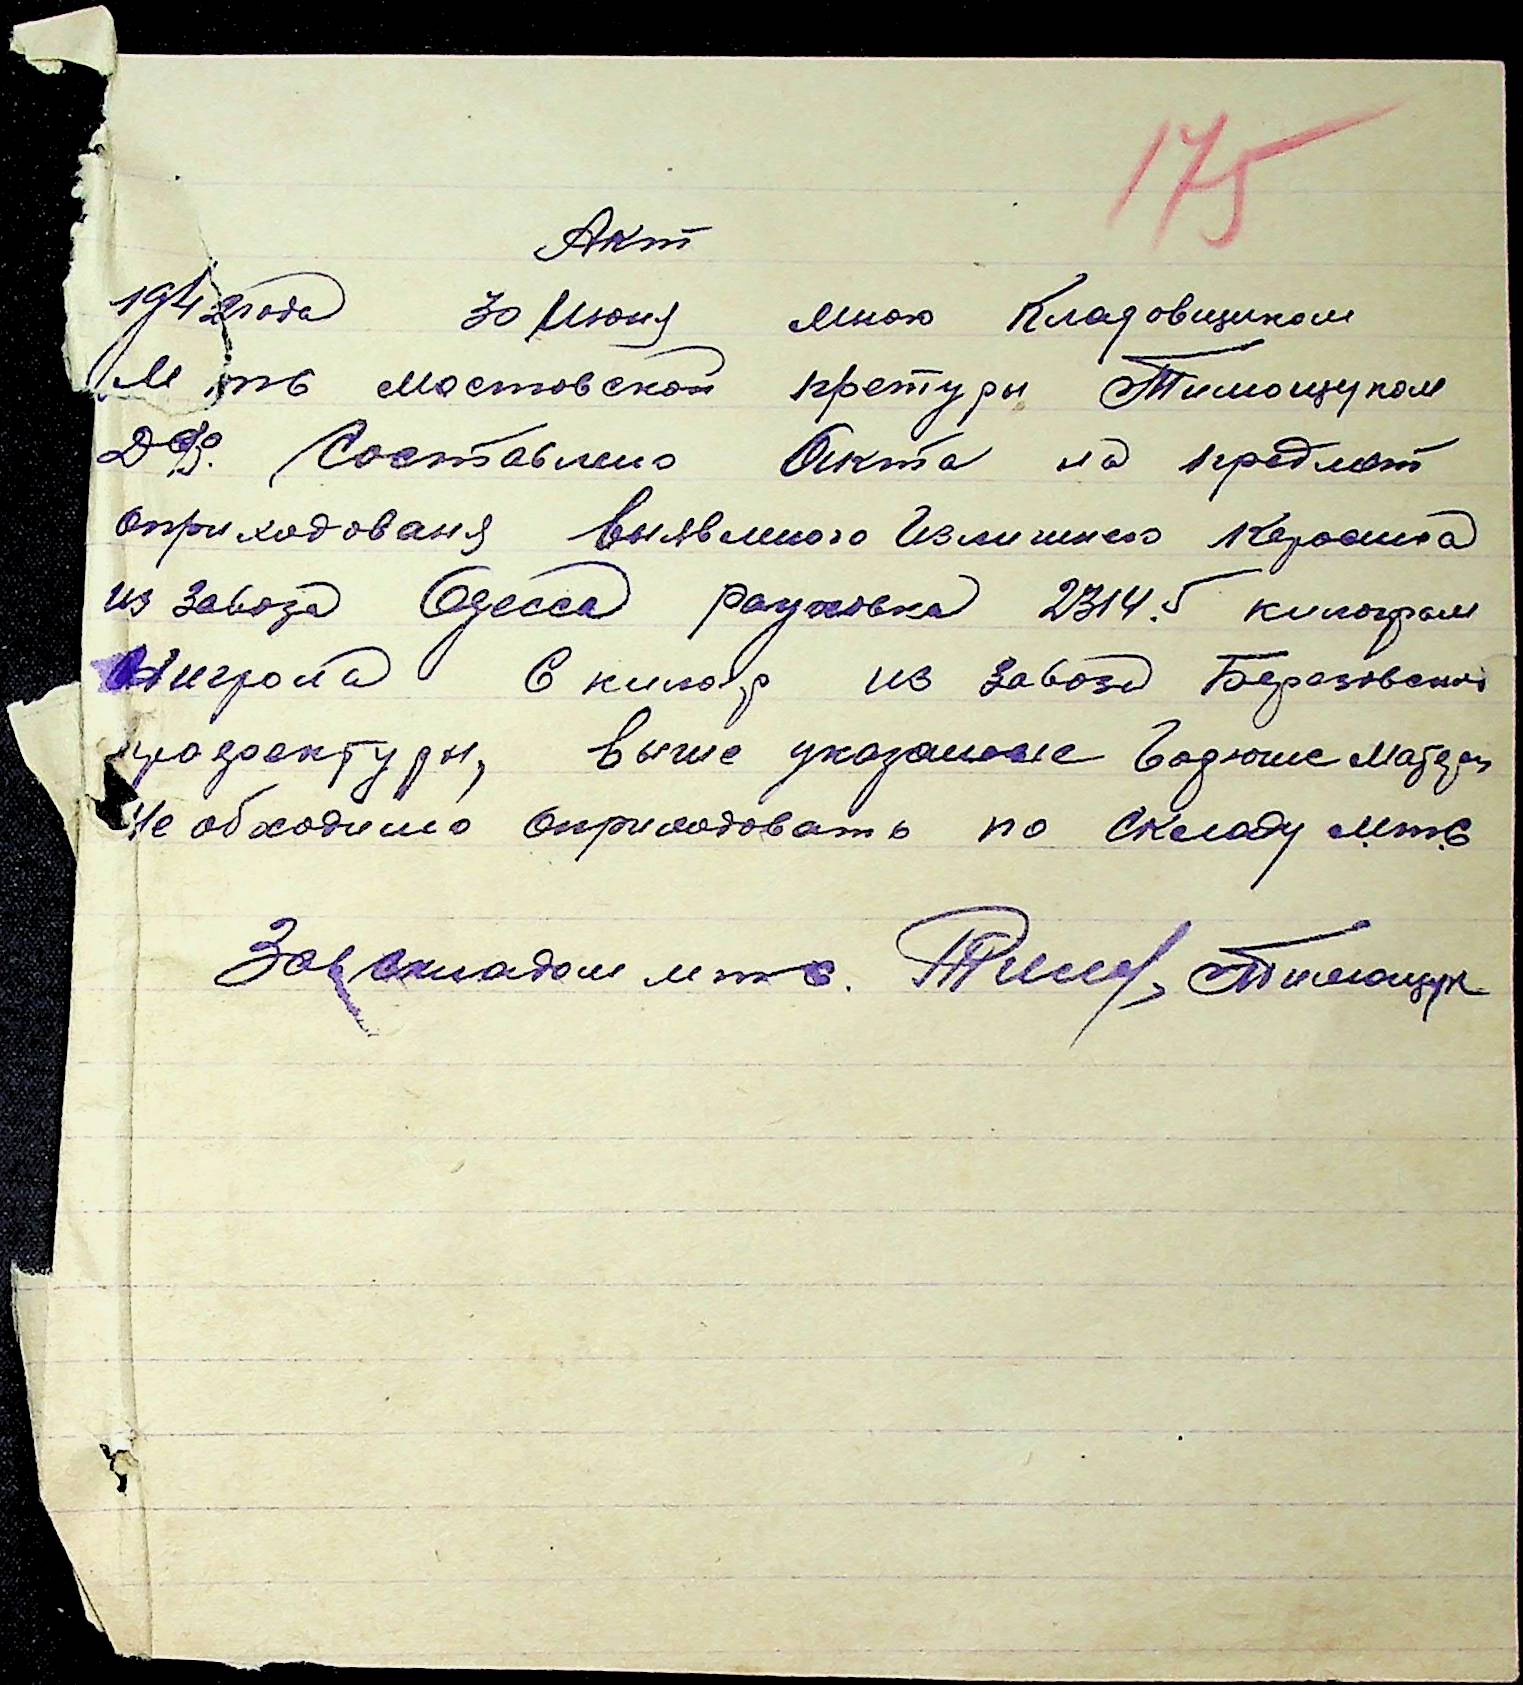 175
Акт
1942 года 30 Июня мною Кладовщиком
М т с Мостовской претуры Тимощуком
Составлено Акта на предмет
оприходованя выявленого Излишнего Керосина
из завоза Одесса Раухова 2314.5 килограм
Нигрола 6 килогр из завоза Березовской
профектуры, выше указаные Горючие Матер
Необходимо оприходовать по складу М.т.с
Зав складом м т с. Тимощук